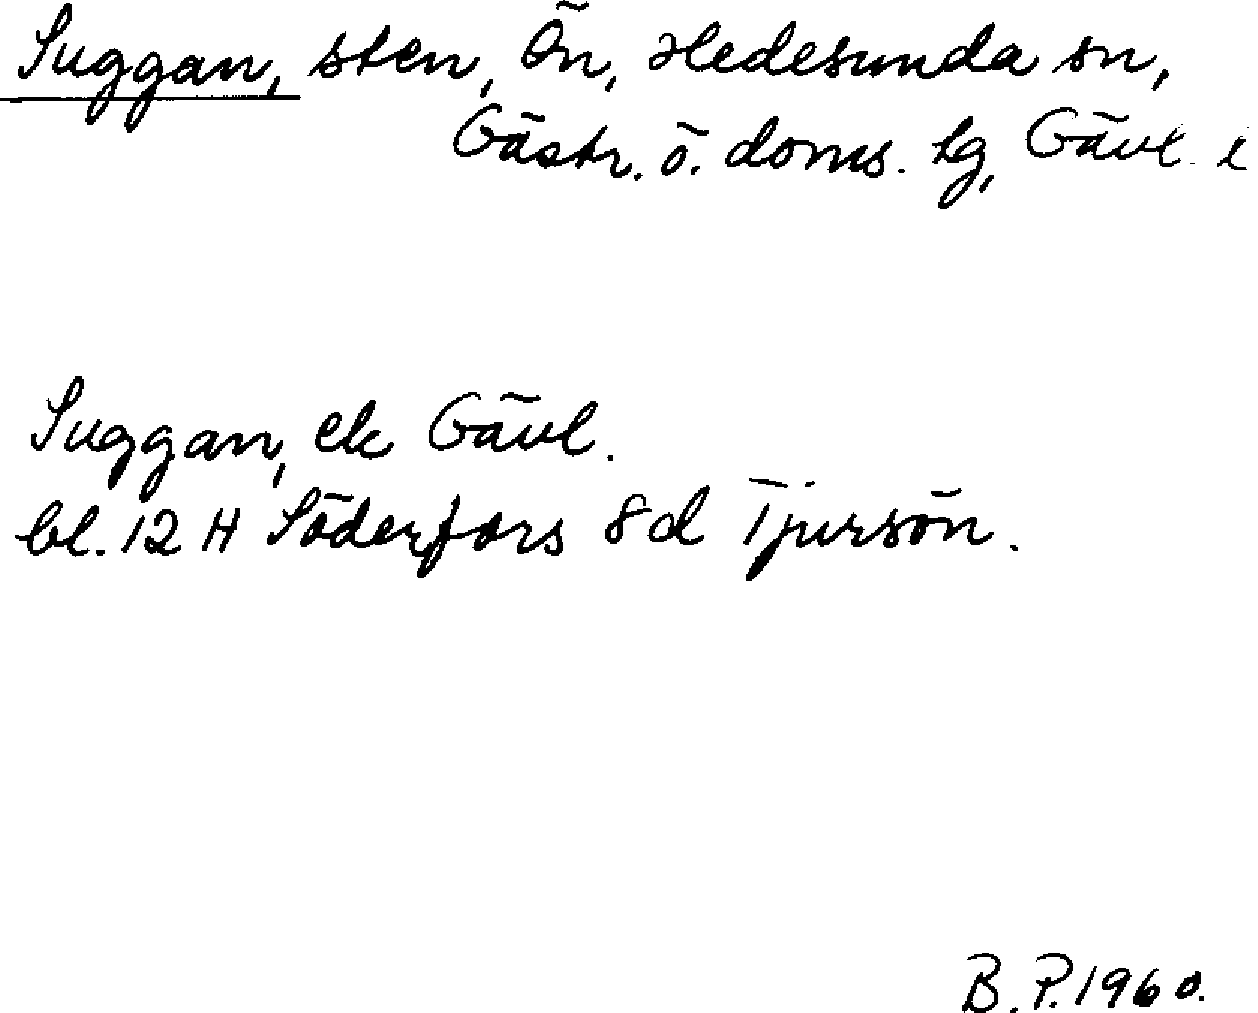 Suggan, sten, Ön, Hedesunda sn,
Gästr. ö. doms. lg, Gävl. l
Suggan, ek Gävl.
bl. 12 H Söderfors 8d Tjursön.
B.P. 1960.